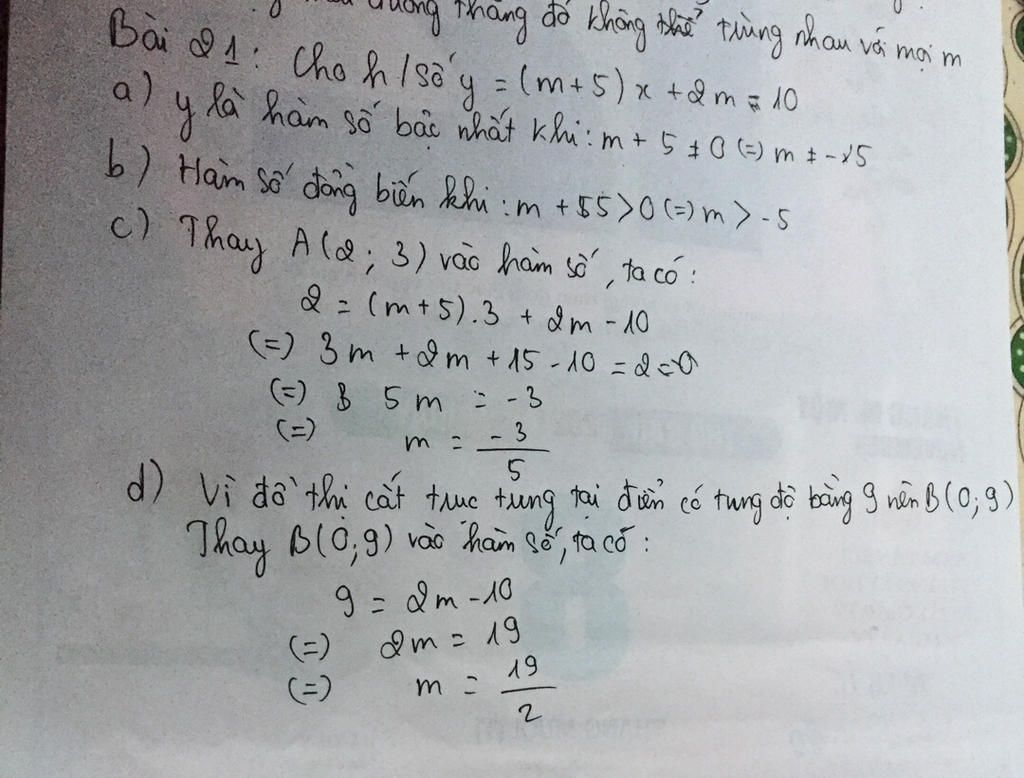 đường thẳng đó không thể trùng nhau với mọi m
Bài 21: Cho h/số y = (m+5)x + 2m - 10
a) y là hàm số bậc nhất khi: m + 5 ≠ 0 (=) m ≠ -5
b) Hàm số đồng biến khi: m + 5 > 0 (=) m > -5
c) Thay A(2; 3) vào hàm số, ta có:
2 = (m+5).3 + 2m - 10
(=) 3m + 2m + 15 - 10 = 2 = 0
(=) 5m = -3
(=) m = -3/5
d) Vì đồ thi cắt truc tung tại điển có tung độ bằng 9 nên B(0;9)
Thay B(0;9) vào hàm số, ta có:
9 = 2m - 10
(=) 2m = 19
(=) m = 19/2